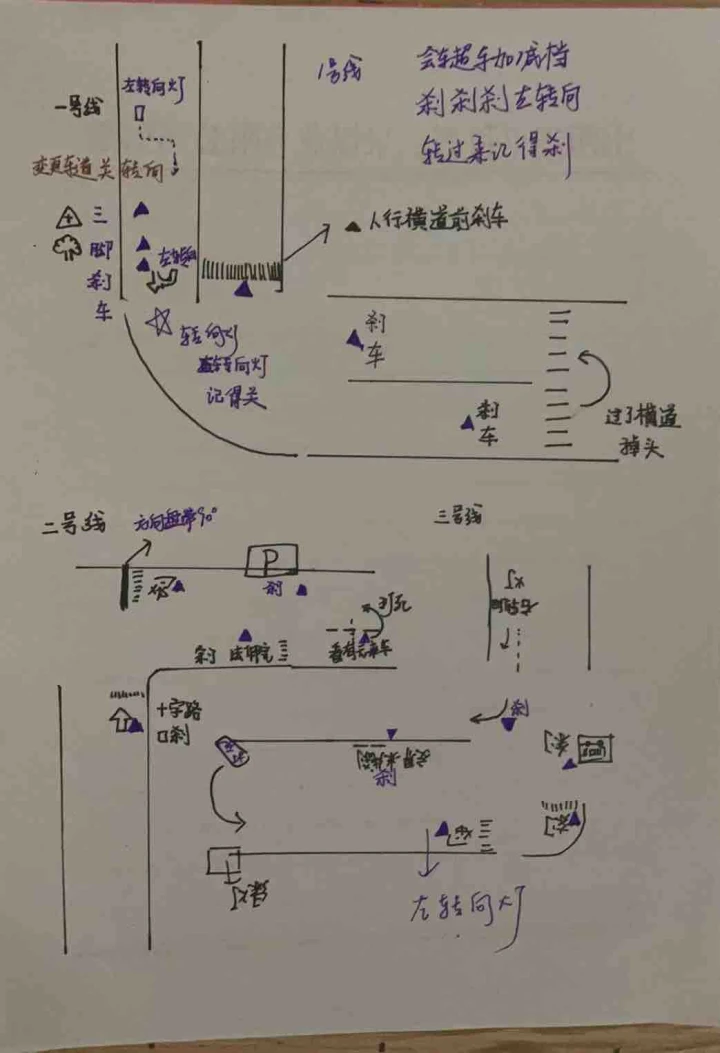 1号线
会车超车加减档
刹刹刹左转向
转过来记得刹
左转向灯
一号线
变更车道关转向
三
脚
刹
车
左转向
人行横道前刹车
转向灯
转向灯
记得关
刹
车
刹
车
过了横道
掉头
二号线
方向盘带90°
三号线
P
刹
刹
打死
刹 法甲宅
看有无来车
十字路
口刹
刹
刹
左转向灯